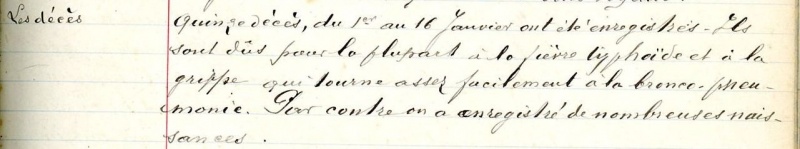 Les décès
Quinze décès, du 1er au 16 Janvier ont été enregistrés - Ils
sont dûs pour la plupart à la fièvre typhoïde et à la
grippe qui tourne assez facilement à la bronco-pneu-
monie. Par contre on a enregistré de nombreuses nais-
sances.